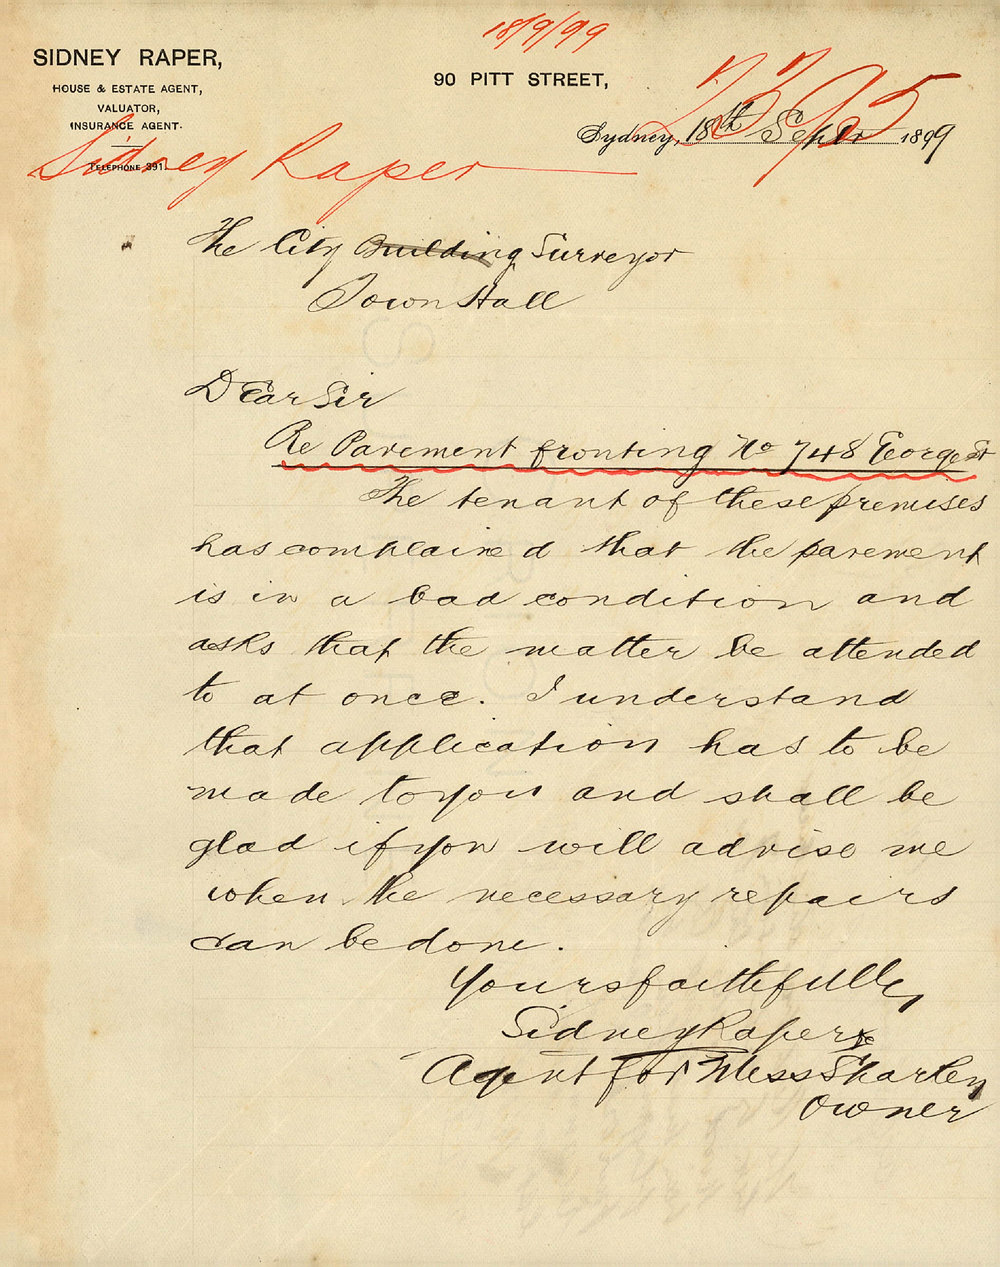 18/9/99
SIDNEY RAPER,
HOUSE & ESTATE AGENT,
VALUATOR,
INSURANCE AGENT.
TELEPHONE 391.
90 PITT STREET,
2395
Sydney, 18th Septr 1899
Sidney Raper
The City Building Surveyor
Town Hall
Dear Sir
Re Pavement fronting No 748 George St
The tenant of these premises
has complained that the pavement
is in a bad condition and
asks that the matter be attended
to at once. I understand
that application has to be
made to you and shall be
glad if you will advise me
when the necessary repairs
can be done.
Yours faithfully
Sidney Raper
Agent for
Owner